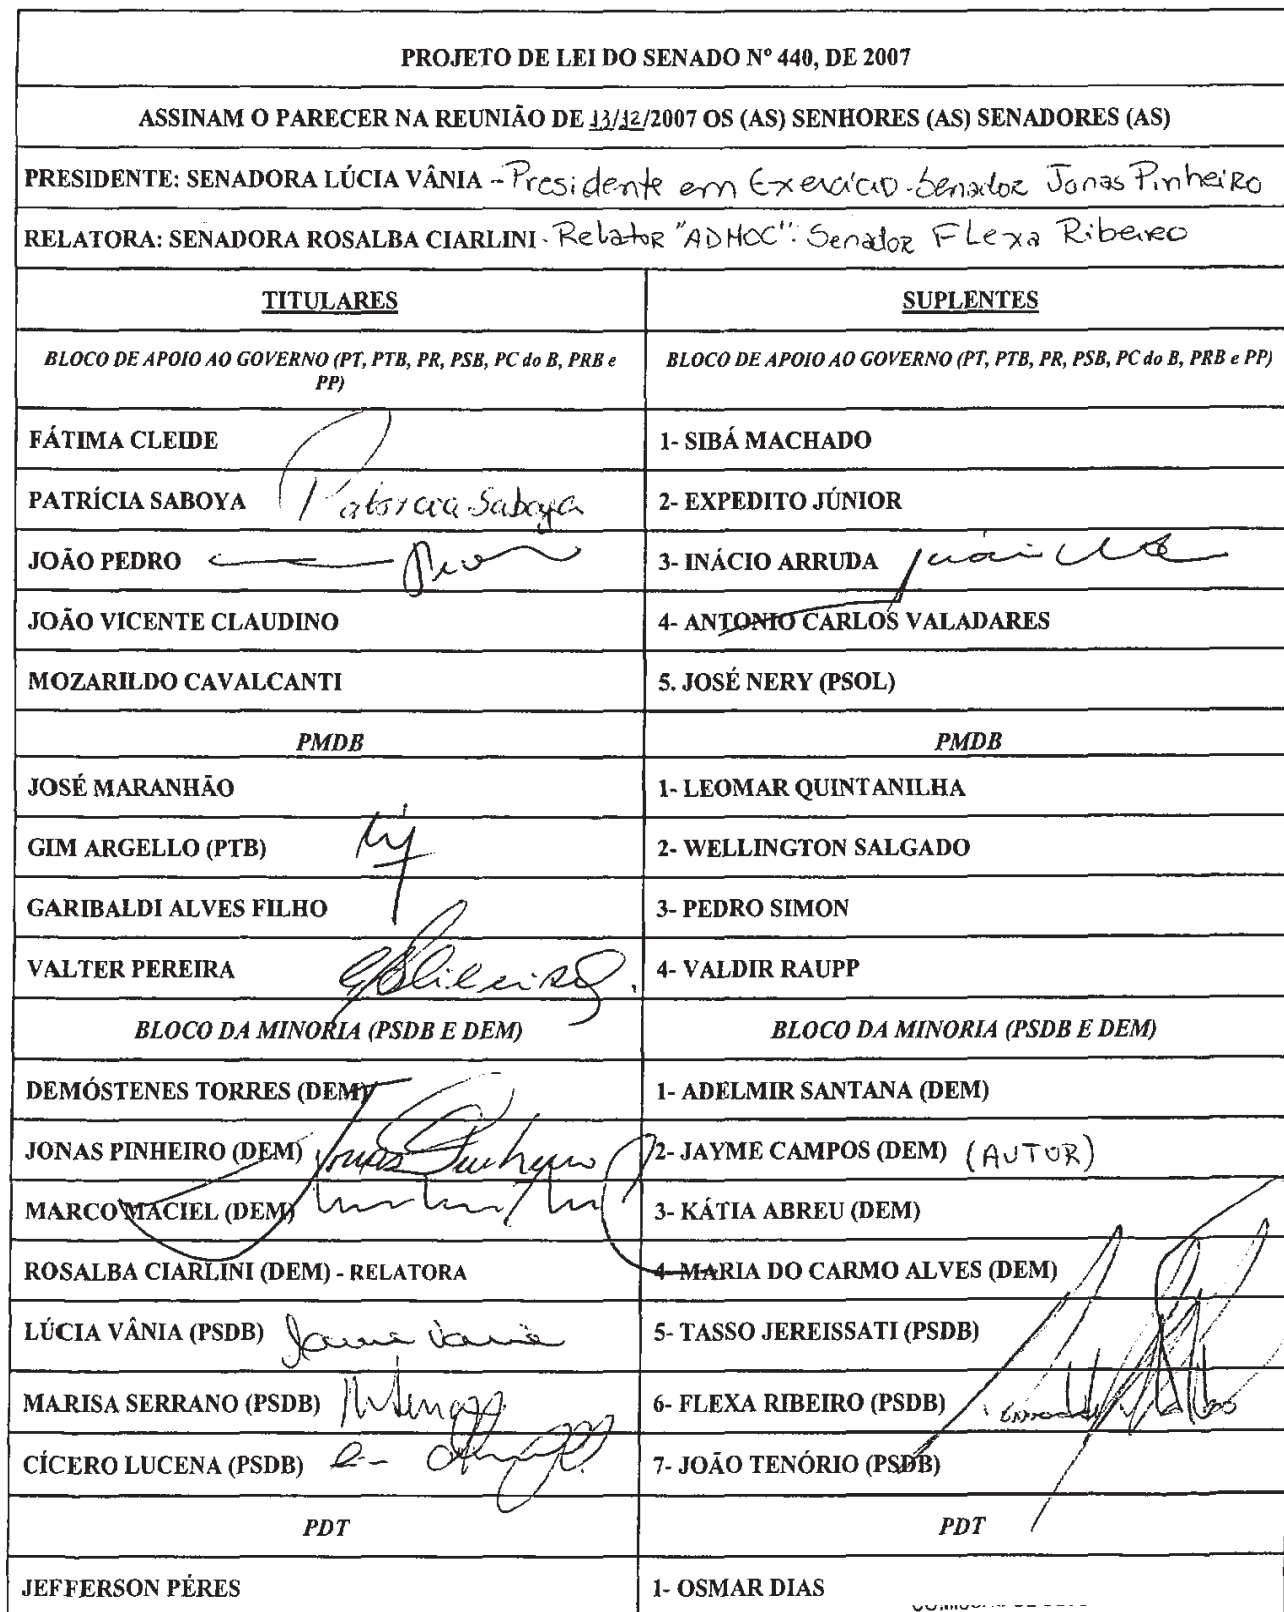 PROJETO DE LEI DO SENADO Nº 440, DE 2007
ASSINAM O PARECER NA REUNIÃO DE 13/12/2007 OS (AS) SENHORES (AS) SENADORES (AS)
PRESIDENTE: SENADORA LÚCIA VÂNIA - Presidente em Exercício - Senador Jonas Pinheiro
RELATORA: SENADORA ROSALBA CIARLINI - Relator "ADHOC": Senador Flexa Ribeiro
TITULARES SUPLENTES
BLOCO DE APOIO AO GOVERNO (PT, PTB, PR, PSB, PC do B, PRB e
PP)
BLOCO DE APOIO AO GOVERNO (PT, PTB, PR, PSB, PC do B, PRB e PP)
FÁTIMA CLEIDE 1- SIBÁ MACHADO
PATRÍCIA SABOYA Patrícia Saboya 2- EXPEDITO JÚNIOR
JOÃO PEDRO 3- INÁCIO ARRUDA
JOÃO VICENTE CLAUDINO 4- ANTONIO CARLOS VALADARES
MOZARILDO CAVALCANTI 5. JOSÉ NERY (PSOL)
PMDB PMDB
JOSÉ MARANHÃO 1- LEOMAR QUINTANILHA
GIM ARGELLO (PTB) 2- WELLINGTON SALGADO
GARIBALDI ALVES FILHO 3- PEDRO SIMON
VALTER PEREIRA 4- VALDIR RAUPP
BLOCO DA MINORIA (PSDB E DEM) BLOCO DA MINORIA (PSDB E DEM)
DEMÓSTENES TORRES (DEM) 1- ADELMIR SANTANA (DEM)
JONAS PINHEIRO (DEM) Jonas Pinheiro 2- JAYME CAMPOS (DEM) (AUTOR)
MARCO MACIEL (DEM) 3- KÁTIA ABREU (DEM)
ROSALBA CIARLINI (DEM) - RELATORA 4- MARIA DO CARMO ALVES (DEM)
LÚCIA VÂNIA (PSDB) Lúcia Vânia 5- TASSO JEREISSATI (PSDB)
MARISA SERRANO (PSDB) 6- FLEXA RIBEIRO (PSDB)
CÍCERO LUCENA (PSDB) 7- JOÃO TENÓRIO (PSDB)
PDT PDT
JEFFERSON PÉRES 1- OSMAR DIAS